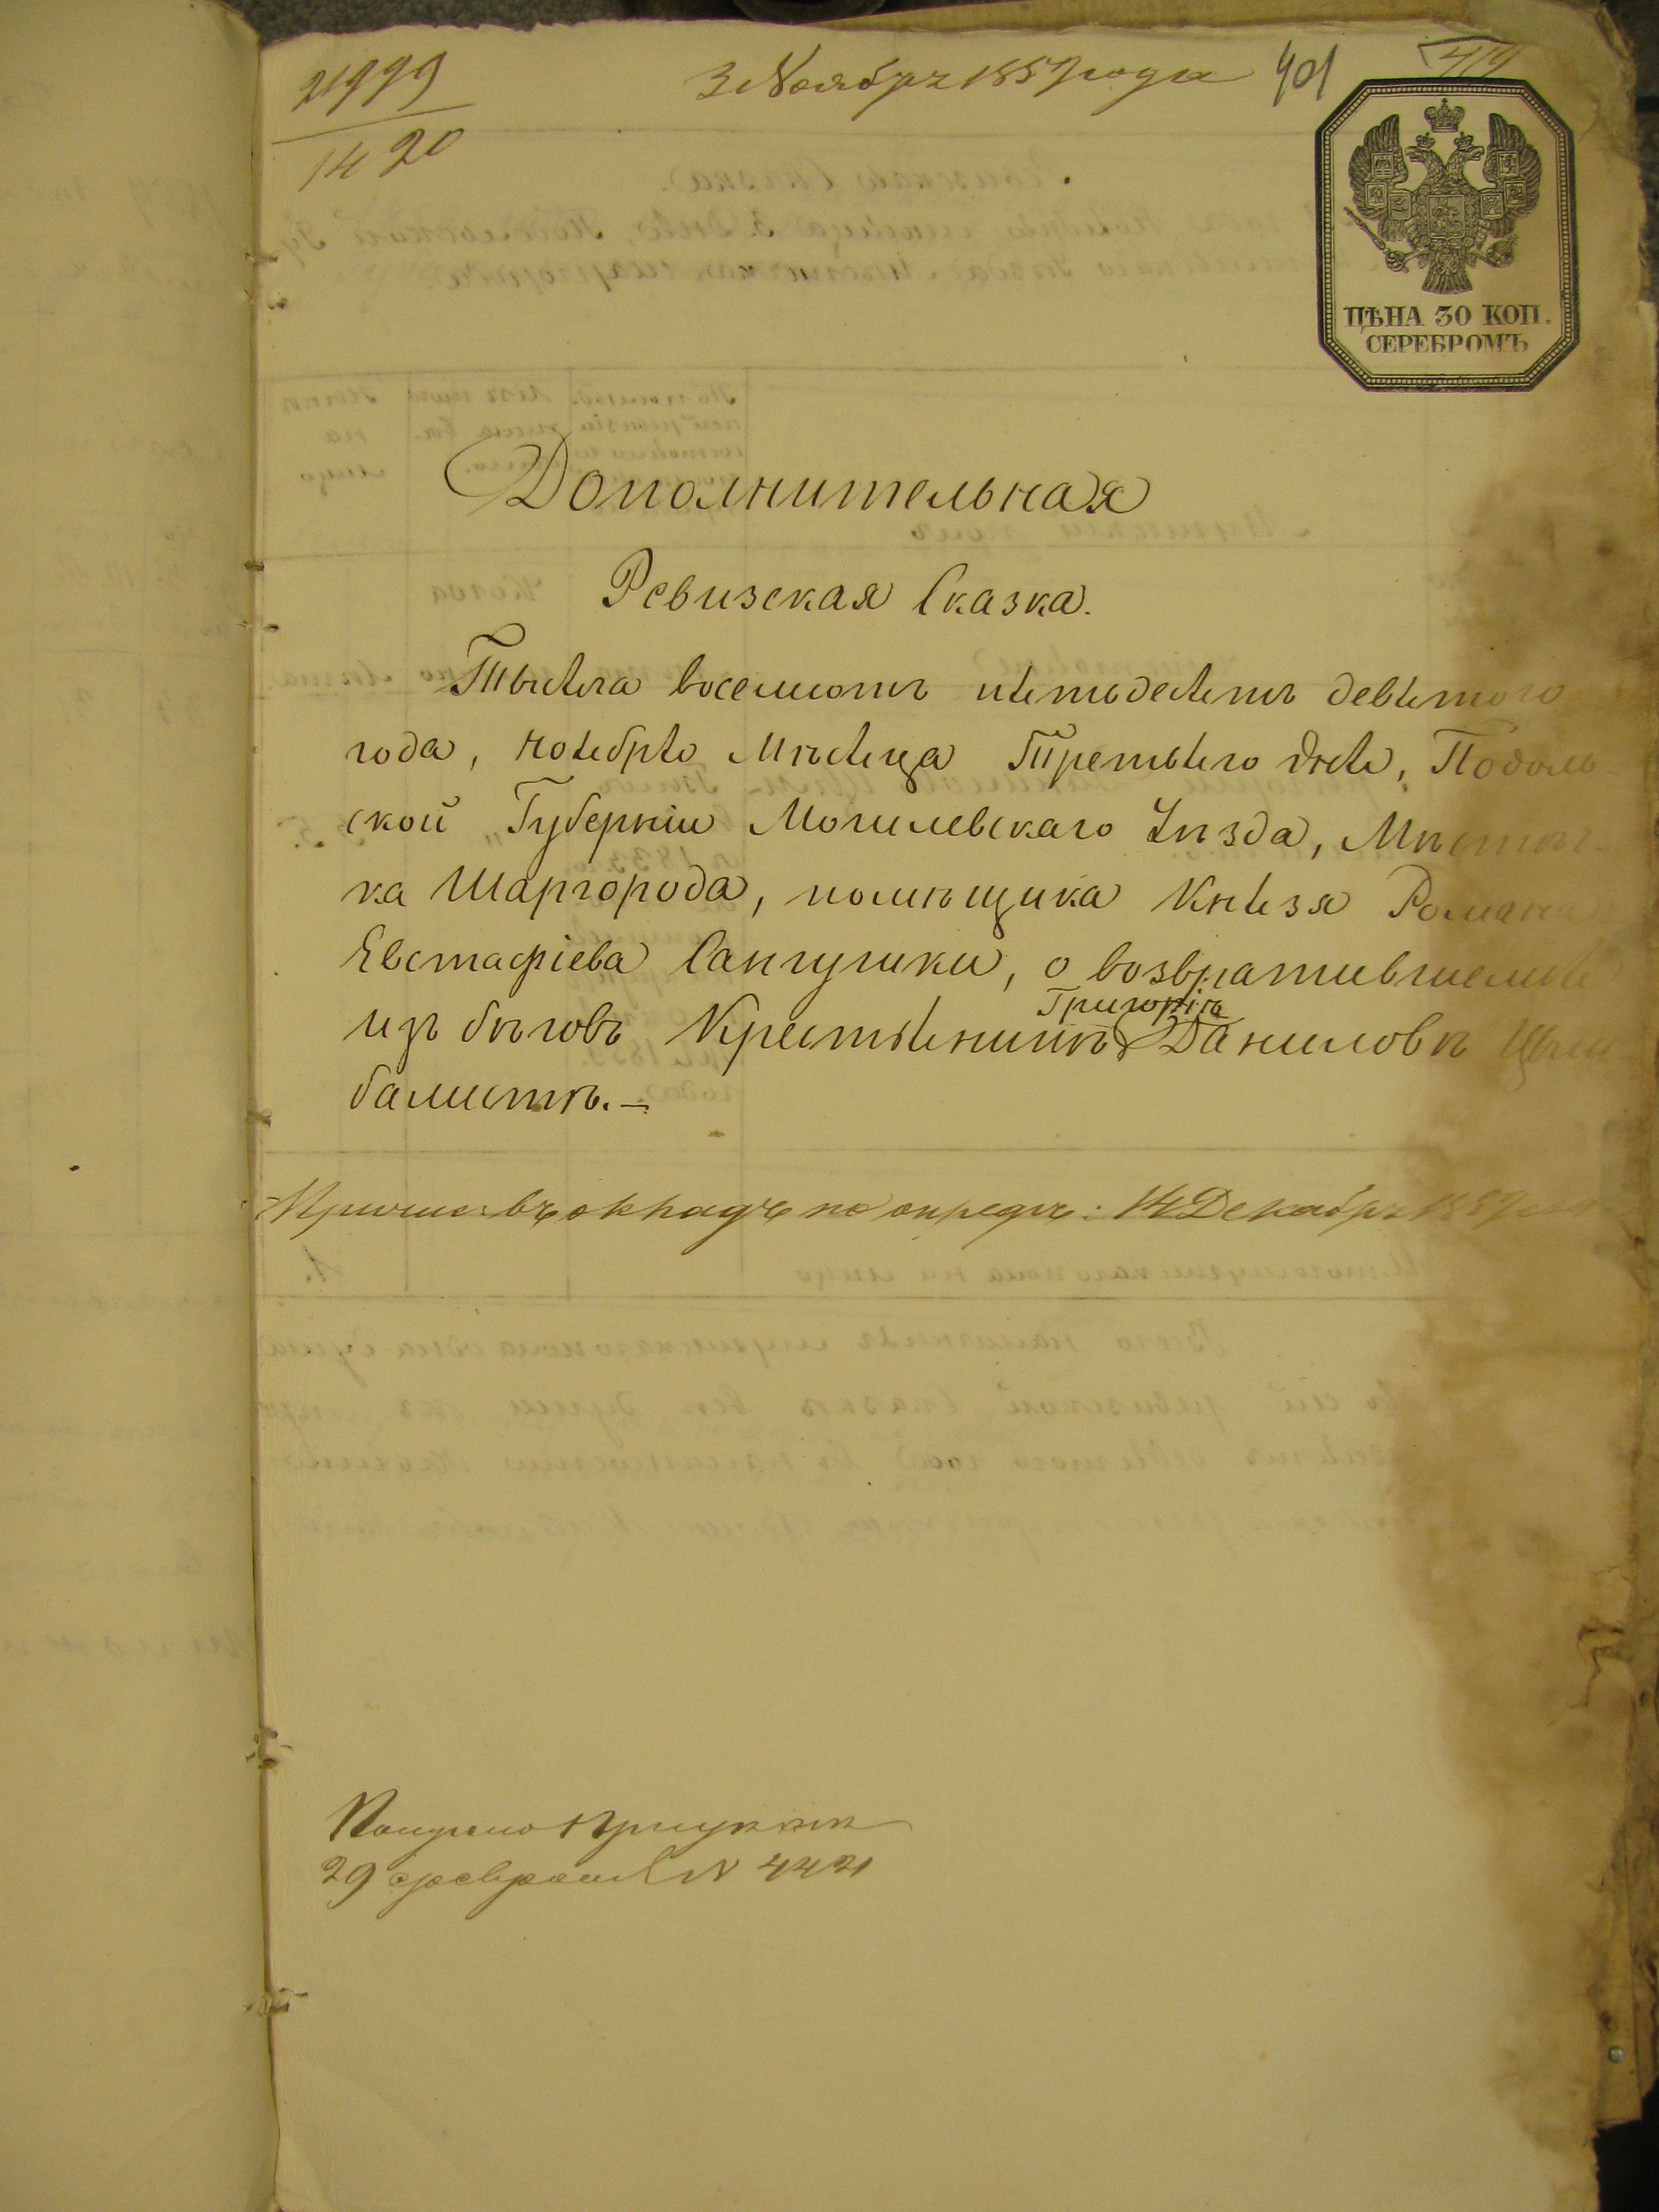 21999
14 20
3 Ноября 1859 года
401
419
ЦѢНА 30 КОП.
СЕРЕБРОМЪ
Дополнительная
Ревизская Сказка.
Тысяча восемсотъ пятьдесятъ девятого
года, ноября Мѣсяца Третьяго дня, Подоль
ской Губерніи Могилевскаго Уѣзда, Мѣстеч-
ка Шаргорода, помѣщика Князя Романа
Евстафіева Сангушки, о возвратившемся
изъ бѣговъ Крестьянинѣ Григоріѣ Даниловѣ Цым-
балистѣ.—
въ окладъ по опредѣ: 14 Декабря 1859
29 февраля N